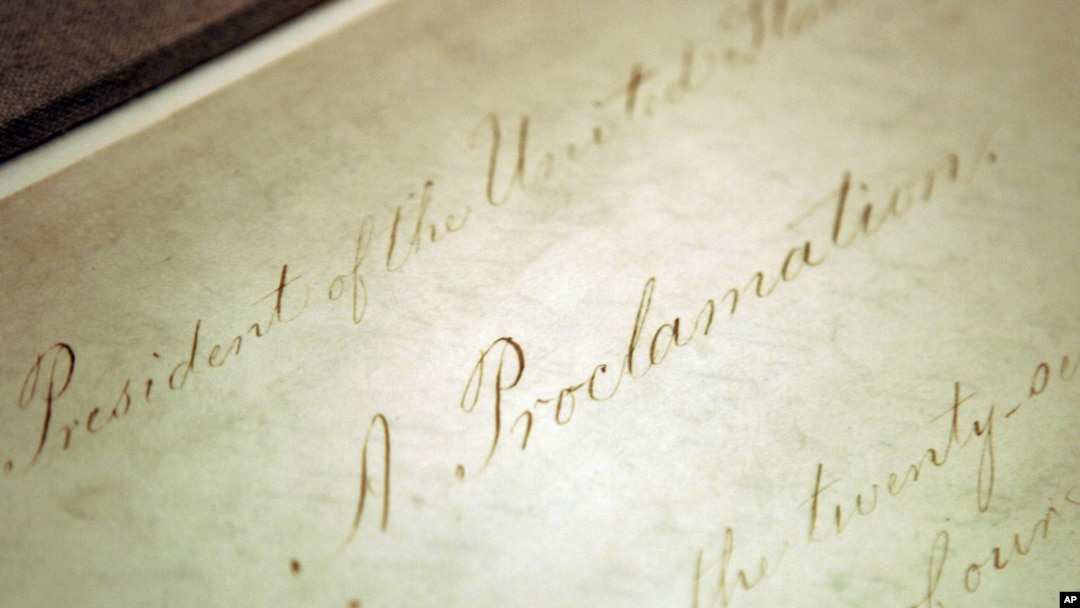 President of the United
A Proclamation.
the twenty-
AP